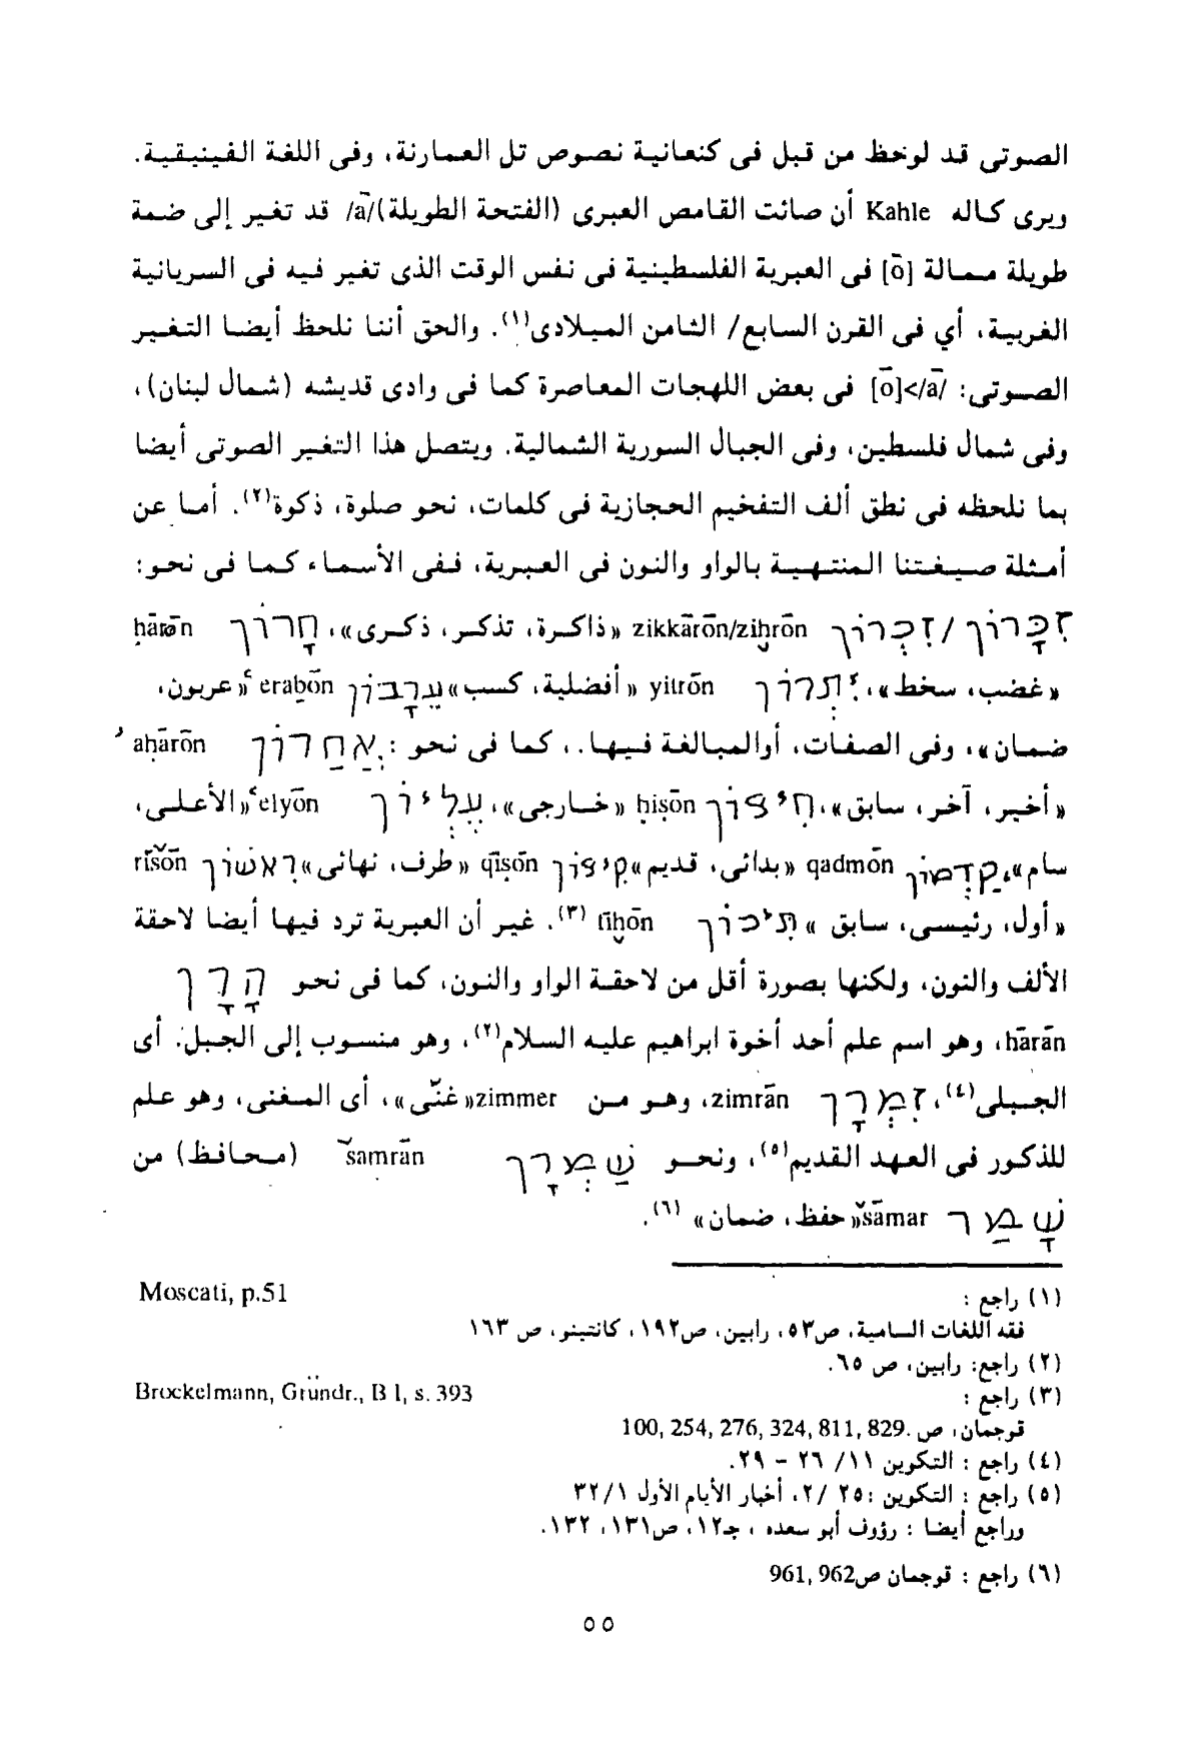 الصوتى قد لوحظ من قبل فى كنعانية نصوص تل العمارنة، وفى اللغة الفينيقية.
ويرى كاله Kahle أن صائت القامص العبرى (الفتحة الطويلة)/ā/ قد تغير إلى ضمة
طويلة ممالة [ō] فى العبرية الفلسطينية فى نفس الوقت الذى تغير فيه فى السريانية
الغربية، أي فى القرن السابع/ الثامن الميلادى(١). والحق أننا نلحظ أيضا التغير
الصوتى: /ā/>[ō] فى بعض اللهجات المعاصرة كما فى وادى قديشه (شمال لبنان)،
وفى شمال فلسطين، وفى الجبال السورية الشمالية. ويتصل هذا التغير الصوتى أيضا
بما نلحظه فى نطق ألف التفخيم الحجازية فى كلمات، نحو صلوة، ذكوة(٢). أما عن
أمثلة صيغتنا المنتهية بالواو والنون فى العبرية، ففى الأسماء كما فى نحو:
זִכָּרוֹן / זִכְרוֹן zikkārōn/ziḫrōn «ذاكرة، تذكر، ذكرى»، חָרוֹן ḥārōn
«غضب، سخط»، יִתְרוֹן yitrōn «أفضلية، كسب» עֵרָבוֹן ʿerabōn «عربون،
ضمان»، وفى الصفات، أوالمبالغة فيها.. كما فى نحو: אַחֲרוֹן ʾaḥārōn
«أخير، آخر، سابق»، חִיצוֹן ḥiṣōn «خارجى»، עֶלְיוֹן ʿelyōn «الأعلى،
سام»، קַדְמוֹן qadmōn «بدائى، قديم» קִיצוֹן qīṣōn «طرف، نهائى» רִאשׁוֹן rīšōn
«أول، رئيسى، سابق» תִּיכוֹן tīḫōn (٣). غير أن العبرية ترد فيها أيضا لاحقة
الألف والنون، ولكنها بصورة أقل من لاحقة الواو والنون، كما فى نحو הָרָן
hārān، وهو اسم علم أحد أخوة ابراهيم عليه السلام(٢)، وهو منسوب إلى الجبل. أى
الجبلى(٤)، זִמְרָן zimrān، وهو من zimmer «غنّى»، أى المغنى، وهو علم
للذكور فى العهد القديم(٥)، ونحو שַׁמְרָן šamrān (محافظ) من
שָׁמַר šāmar «حفظ، ضمان» (٦).
(١) راجع : Moscati, p.51
فقه اللغات السامية، ص٥٣، رابين، ص١٩٢، كانتينو، ص ١٦٣
(٢) راجع: رابين، ص ٦٥.
(٣) راجع : Brockelmann, Gründr., B I, s. 393
قوجمان، ص .100, 254, 276, 324, 811, 829
(٤) راجع : التكوين ١١/ ٢٦ - ٢٩.
(٥) راجع : التكوين :٢٥ /٢، أخبار الأيام الأول ٣٢/١
وراجع أيضا : رؤوف أبو سعده ، جـ١٢، ص١٣١، ١٣٢.
(٦) راجع : قوجمان ص961, 962
٥٥